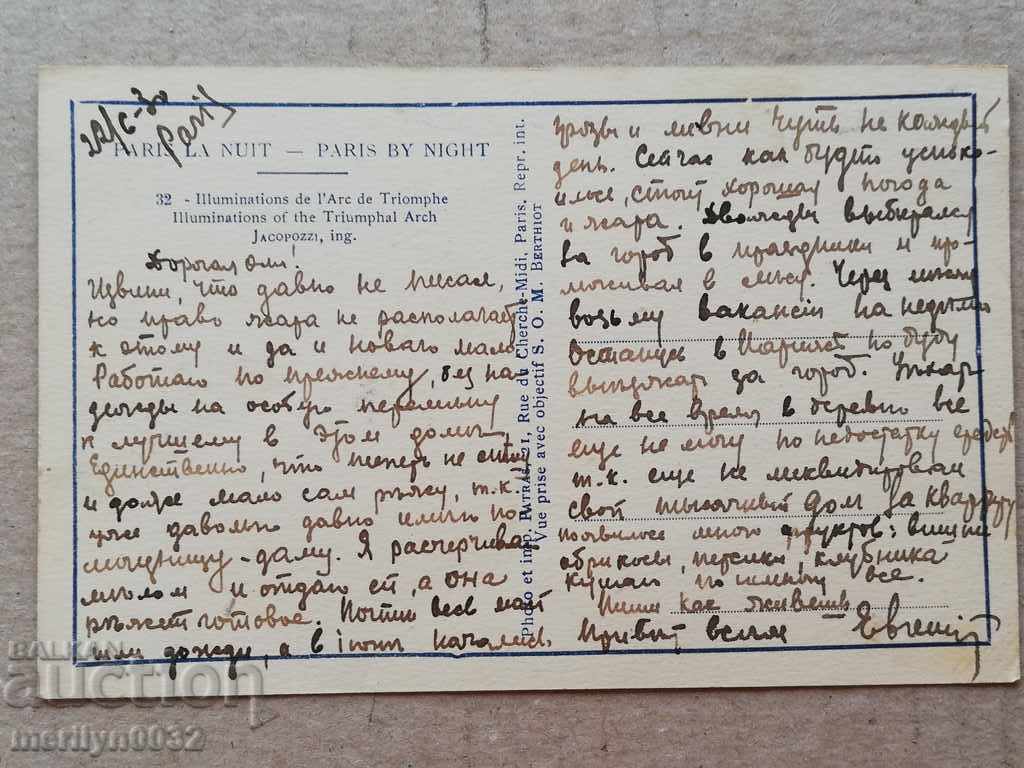 22/6-30
Paris
PARIS LA NUIT — PARIS BY NIGHT
32 - Illuminations de l'Arc de Triomphe
Illuminations of the Triumphal Arch
JACOPOZZI, ing.
Дорогая Оля!
Извини, что давно не писал,
но право жара не располагает
к этому и да и нового мало
Работаю по прежнему, без на
дежды на особую перемену
к лучшему в этом доме
Единственно, что теперь не
и даже мало сам режу, т.к.
уже давольно давно имею по
мощницу-даму. Я расчерчиваю
мелом и отдаю ей, а она
режет готовое. Почти весь май
шли дожди, а в iюне начались
Photo et imp. PATRAS, 21, Rue du Cherche-Midi, Paris. Repr. int.
Vue prise avec objectif S. O. M. BERTHIOT
грозы и ливни чуть не каждый
день. Сейчас как будто успоко-
илось, стоит хорошая погода
и жара. Дважды выбирался
за город в праздники и
в лесу. Через
возьму вакансiи на неделю
Останусь в Париже но буду
выезжать за город. Уехать
на все время в деревню все
еще не могу по недостатку средств
т.к. еще не ликвидировал
свой долг за квартиру
появилось много фруктов: вишни
абрикосы, персики, клубника
кушаю по немногу все.
Пиши как живешь
Привет всем Евгенiй
BALKAN
auction
merilyn0032